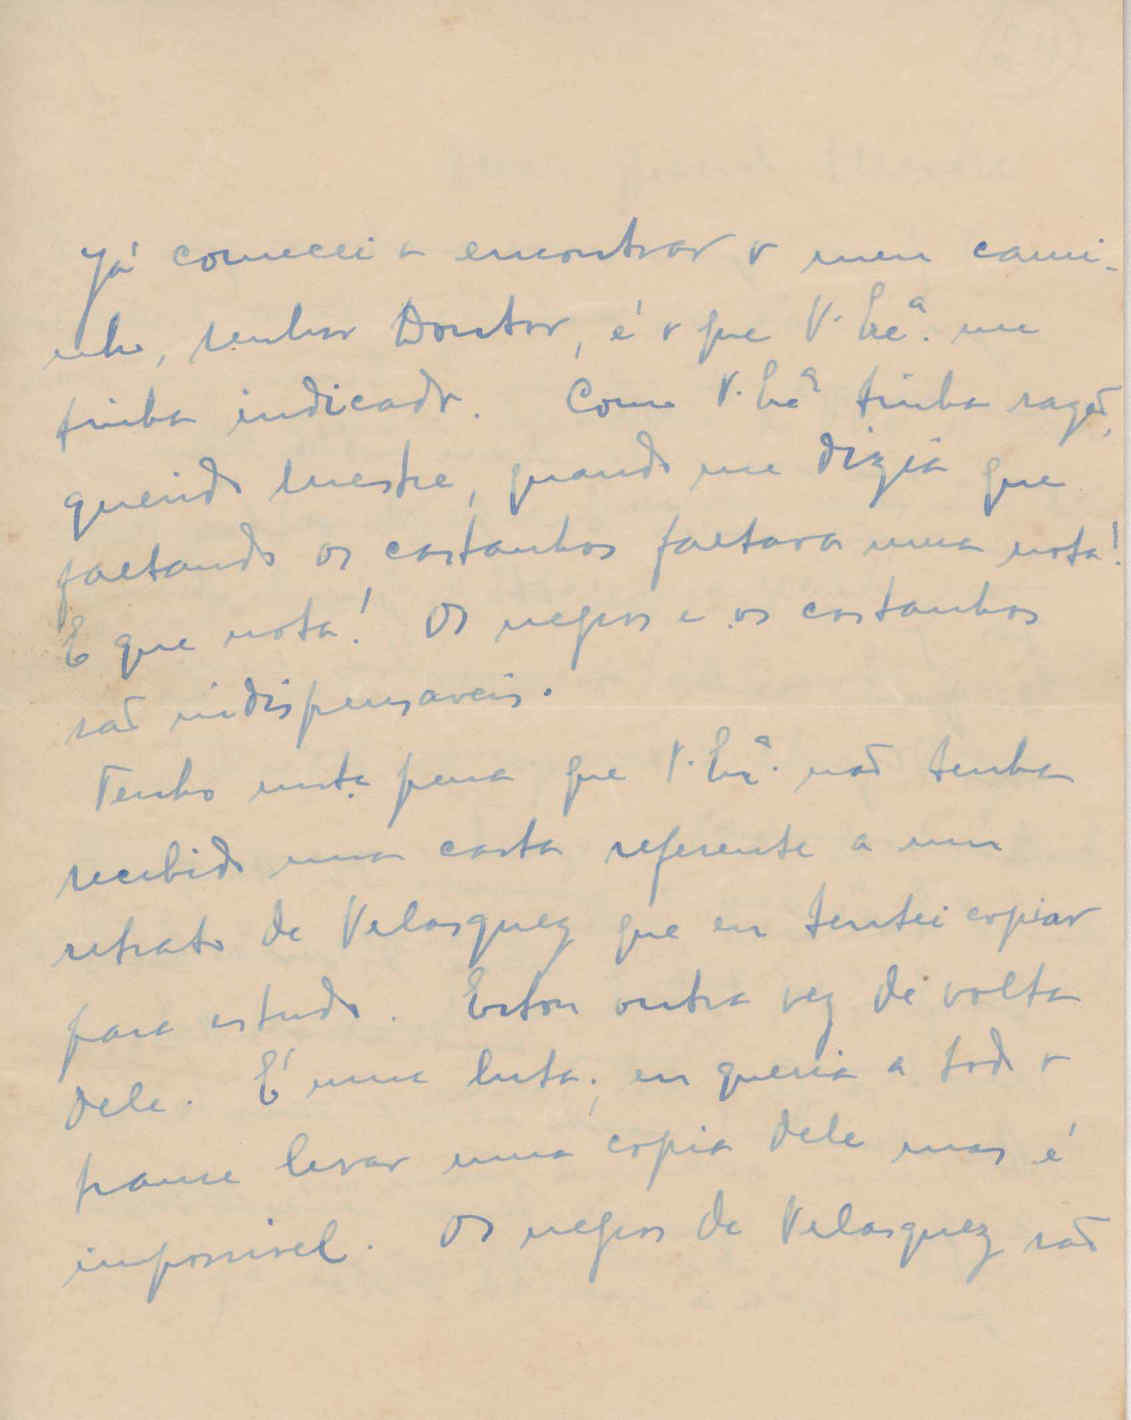 Já comecei a encontrar o meu cami-
nho, senhor Doutor, é o que V. Excª. me
tinha indicado. Como V. Excª tinha razão,
querido Mestre, quando me dizia que
faltando os castanhos faltava uma nota!
E que nota! Os negros e os castanhos
são indispensaveis.
Tenho muita pena que V. Excª. não tenha
recebido uma carta referente a um
retrato de Velasquez que eu tentei copiar
para estudo. Estou outra vez de volta
dele. É uma luta; eu queria a todo o
transe levar uma copia dele mas é
impossivel. Os negros de Velasquez são